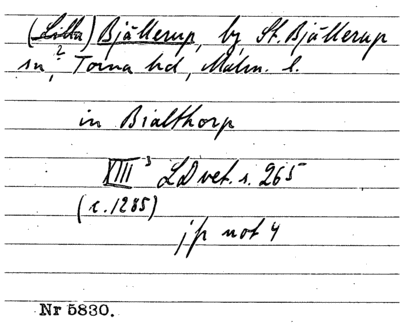 (Lilla) Bjällerup, by, St. Bjällerup
sn,? Torna hd, Malm. l.
in Bialthorp
XIII 3 LD vet. s. 265
(c. 1285)
jfr not 4
Nr 5830.